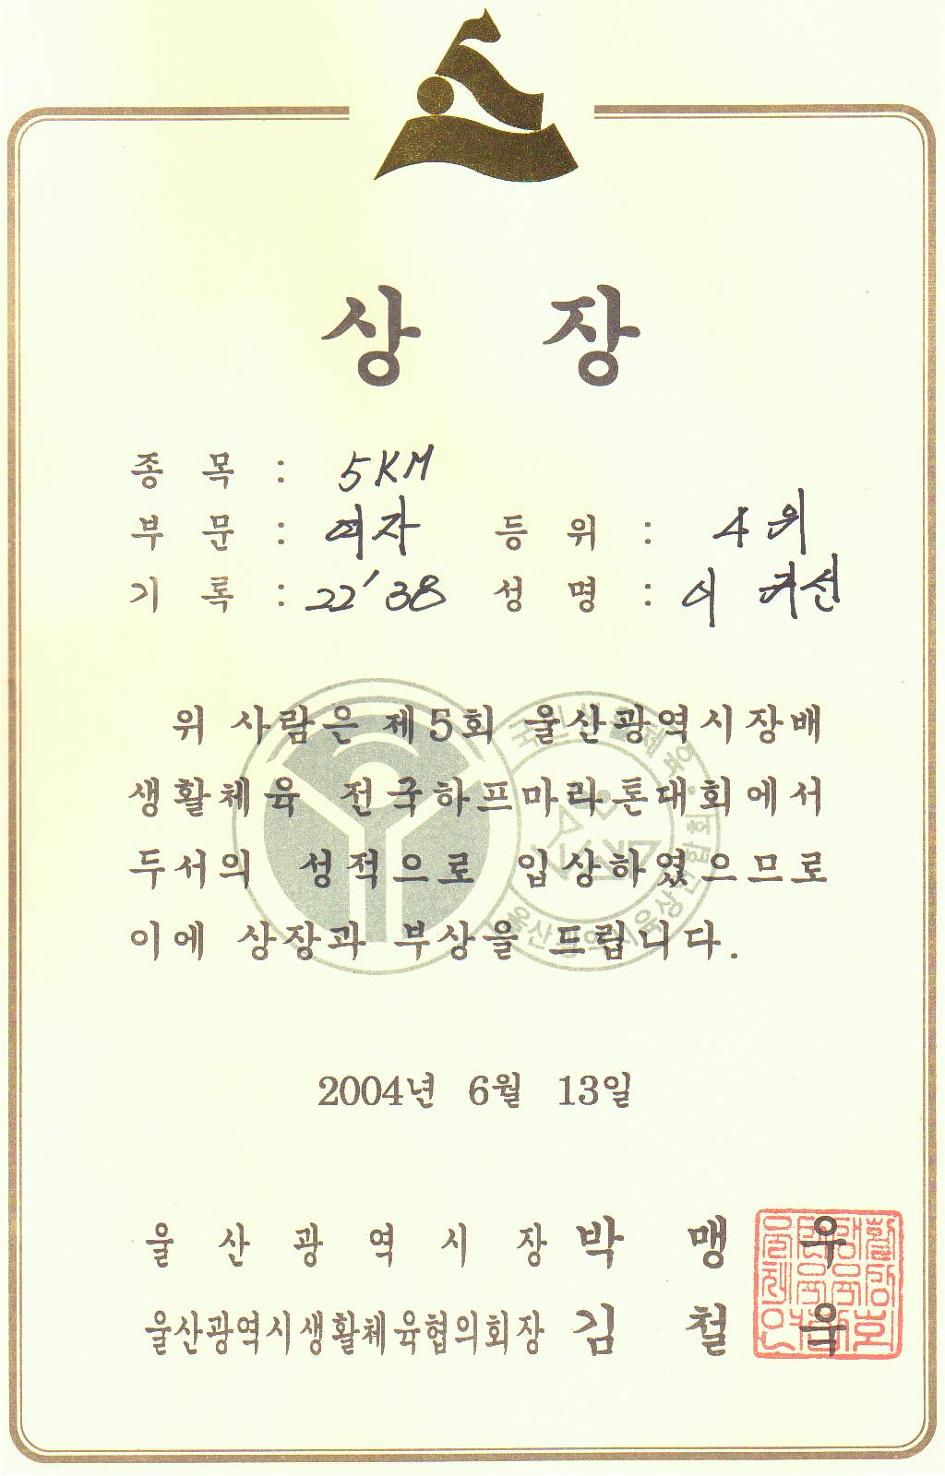 상 장
종 목 : 5KM
부 문 : 여자 등 위 : 4위
기 록 : 22'38 성 명 : 이 선
위 사람은 제5회 울산광역시장배
생활체육 전국하프마라톤대회에서
두서의 성적으로 입상하였으므로
이에 상장과 부상을 드립니다.
2004년 6월 13일
울산광역시장 박 맹 우
울산광역시생활체육협의회장 김 철 욱